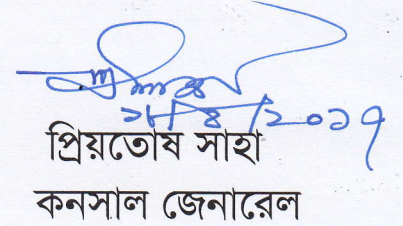 ২৮/৪/২০১৭
প্রিয়তোষ সাহা
কনসাল জেনারেল